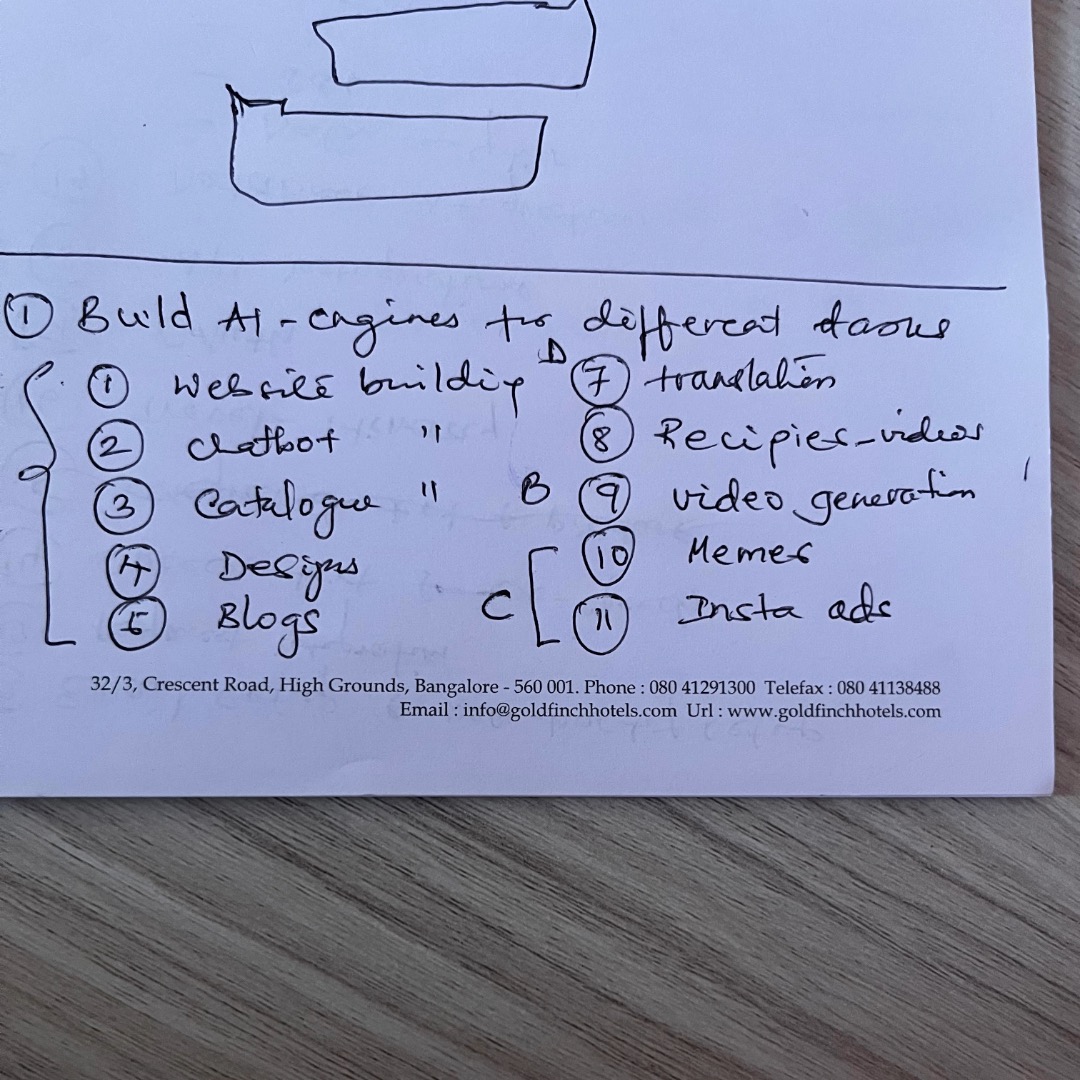 ① Build AI-engines for different tasks
① Website building
② Chatbot "
③ Catalogue "
④ Designs
⑤ Blogs
D ⑦ translation
⑧ Recipies-videos
B ⑨ video generation
C ⑩ Memes
⑪ Insta ads
32/3, Crescent Road, High Grounds, Bangalore - 560 001. Phone : 080 41291300 Telefax : 080 41138488
Email : info@goldfinchhotels.com Url : www.goldfinchhotels.com